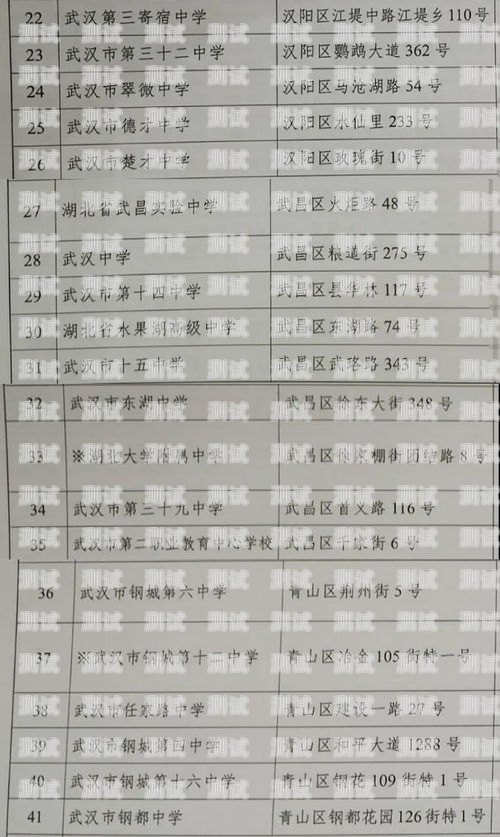 22 武汉第三寄宿中学 汉阳区江堤中路江堤乡 110 号
23 武汉市第三十二中学 汉阳区鹦鹉大道 362 号
24 武汉市翠微中学 汉阳区马沧湖路 54 号
25 武汉市德才中学 汉阳区水仙里 233 号
26 武汉市楚才中学 汉阳区玫瑰街 10 号
27 湖北省武昌实验中学 武昌区火炬路 48 号
28 武汉中学 武昌区粮道街 275 号
29 武汉市第十四中学 武昌区昙华林 117 号
30 湖北省水果湖高级中学 武昌区东湖路 74 号
31 武汉市十五中学 武昌区武珞路 343 号
32 武汉市东湖中学 武昌区徐东大街 348 号
33 ※湖北大学附属中学 武昌区徐家棚街团结路 8 号
34 武汉市第三十九中学 武昌区首义路 116 号
35 武汉市第二职业教育中心学校 武昌区千家街 6 号
36 武汉市钢城第六中学 青山区荆州街 5 号
37 ※武汉市钢城第十二中学 青山区冶金 105 街特一号
38 武汉市任家路中学 青山区建设一路 27 号
39 武汉市钢城第四中学 青山区和平大道 1288 号
40 武汉市钢城第十六中学 青山区钢花 109 街特 1 号
41 武汉市钢都中学 青山区钢都花园 126 街特 1 号